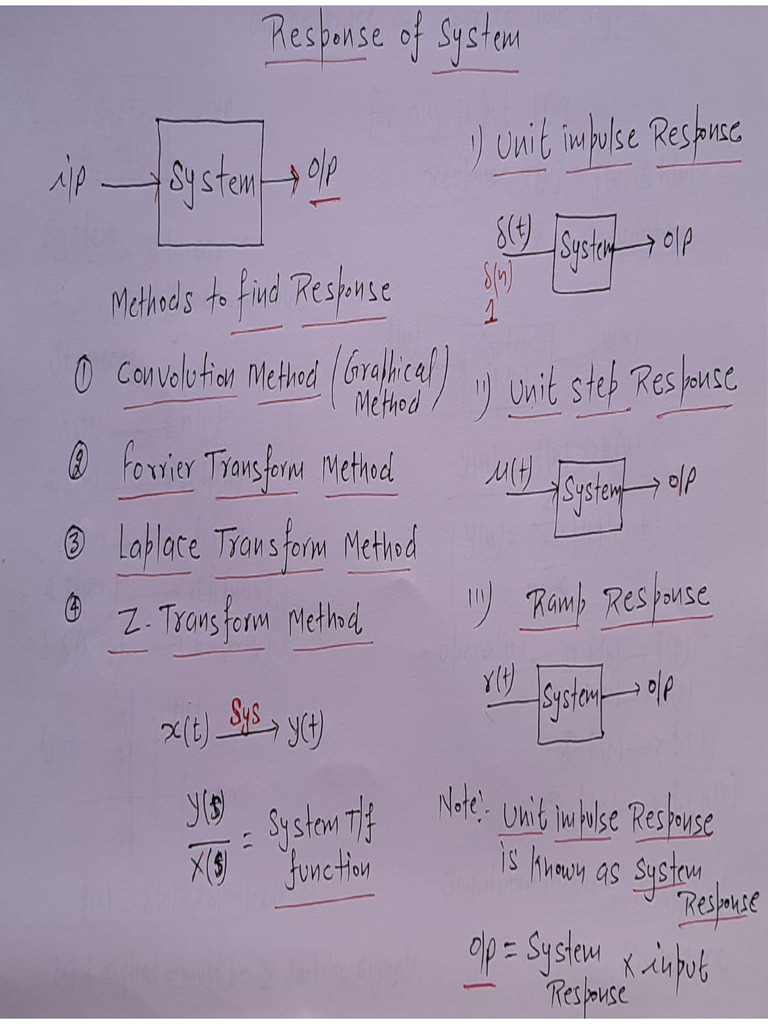 Response of System
i/p System o/p
Methods to find Response
① Convolution Method (Graphical Method)
② Forrier Transform Method
③ Laplace Transform Method
④ Z-Transform Method
x(t) Sys y(t)
Y(s)/X(s) = System T/f
function
i) Unit impulse Response
δ(t) System o/p
δ(n)
1
ii) Unit step Response
u(t) System o/p
iii) Ramp Response
r(t) System o/p
Note:- Unit impulse Response
is known as System
Response
o/p = System Response x input